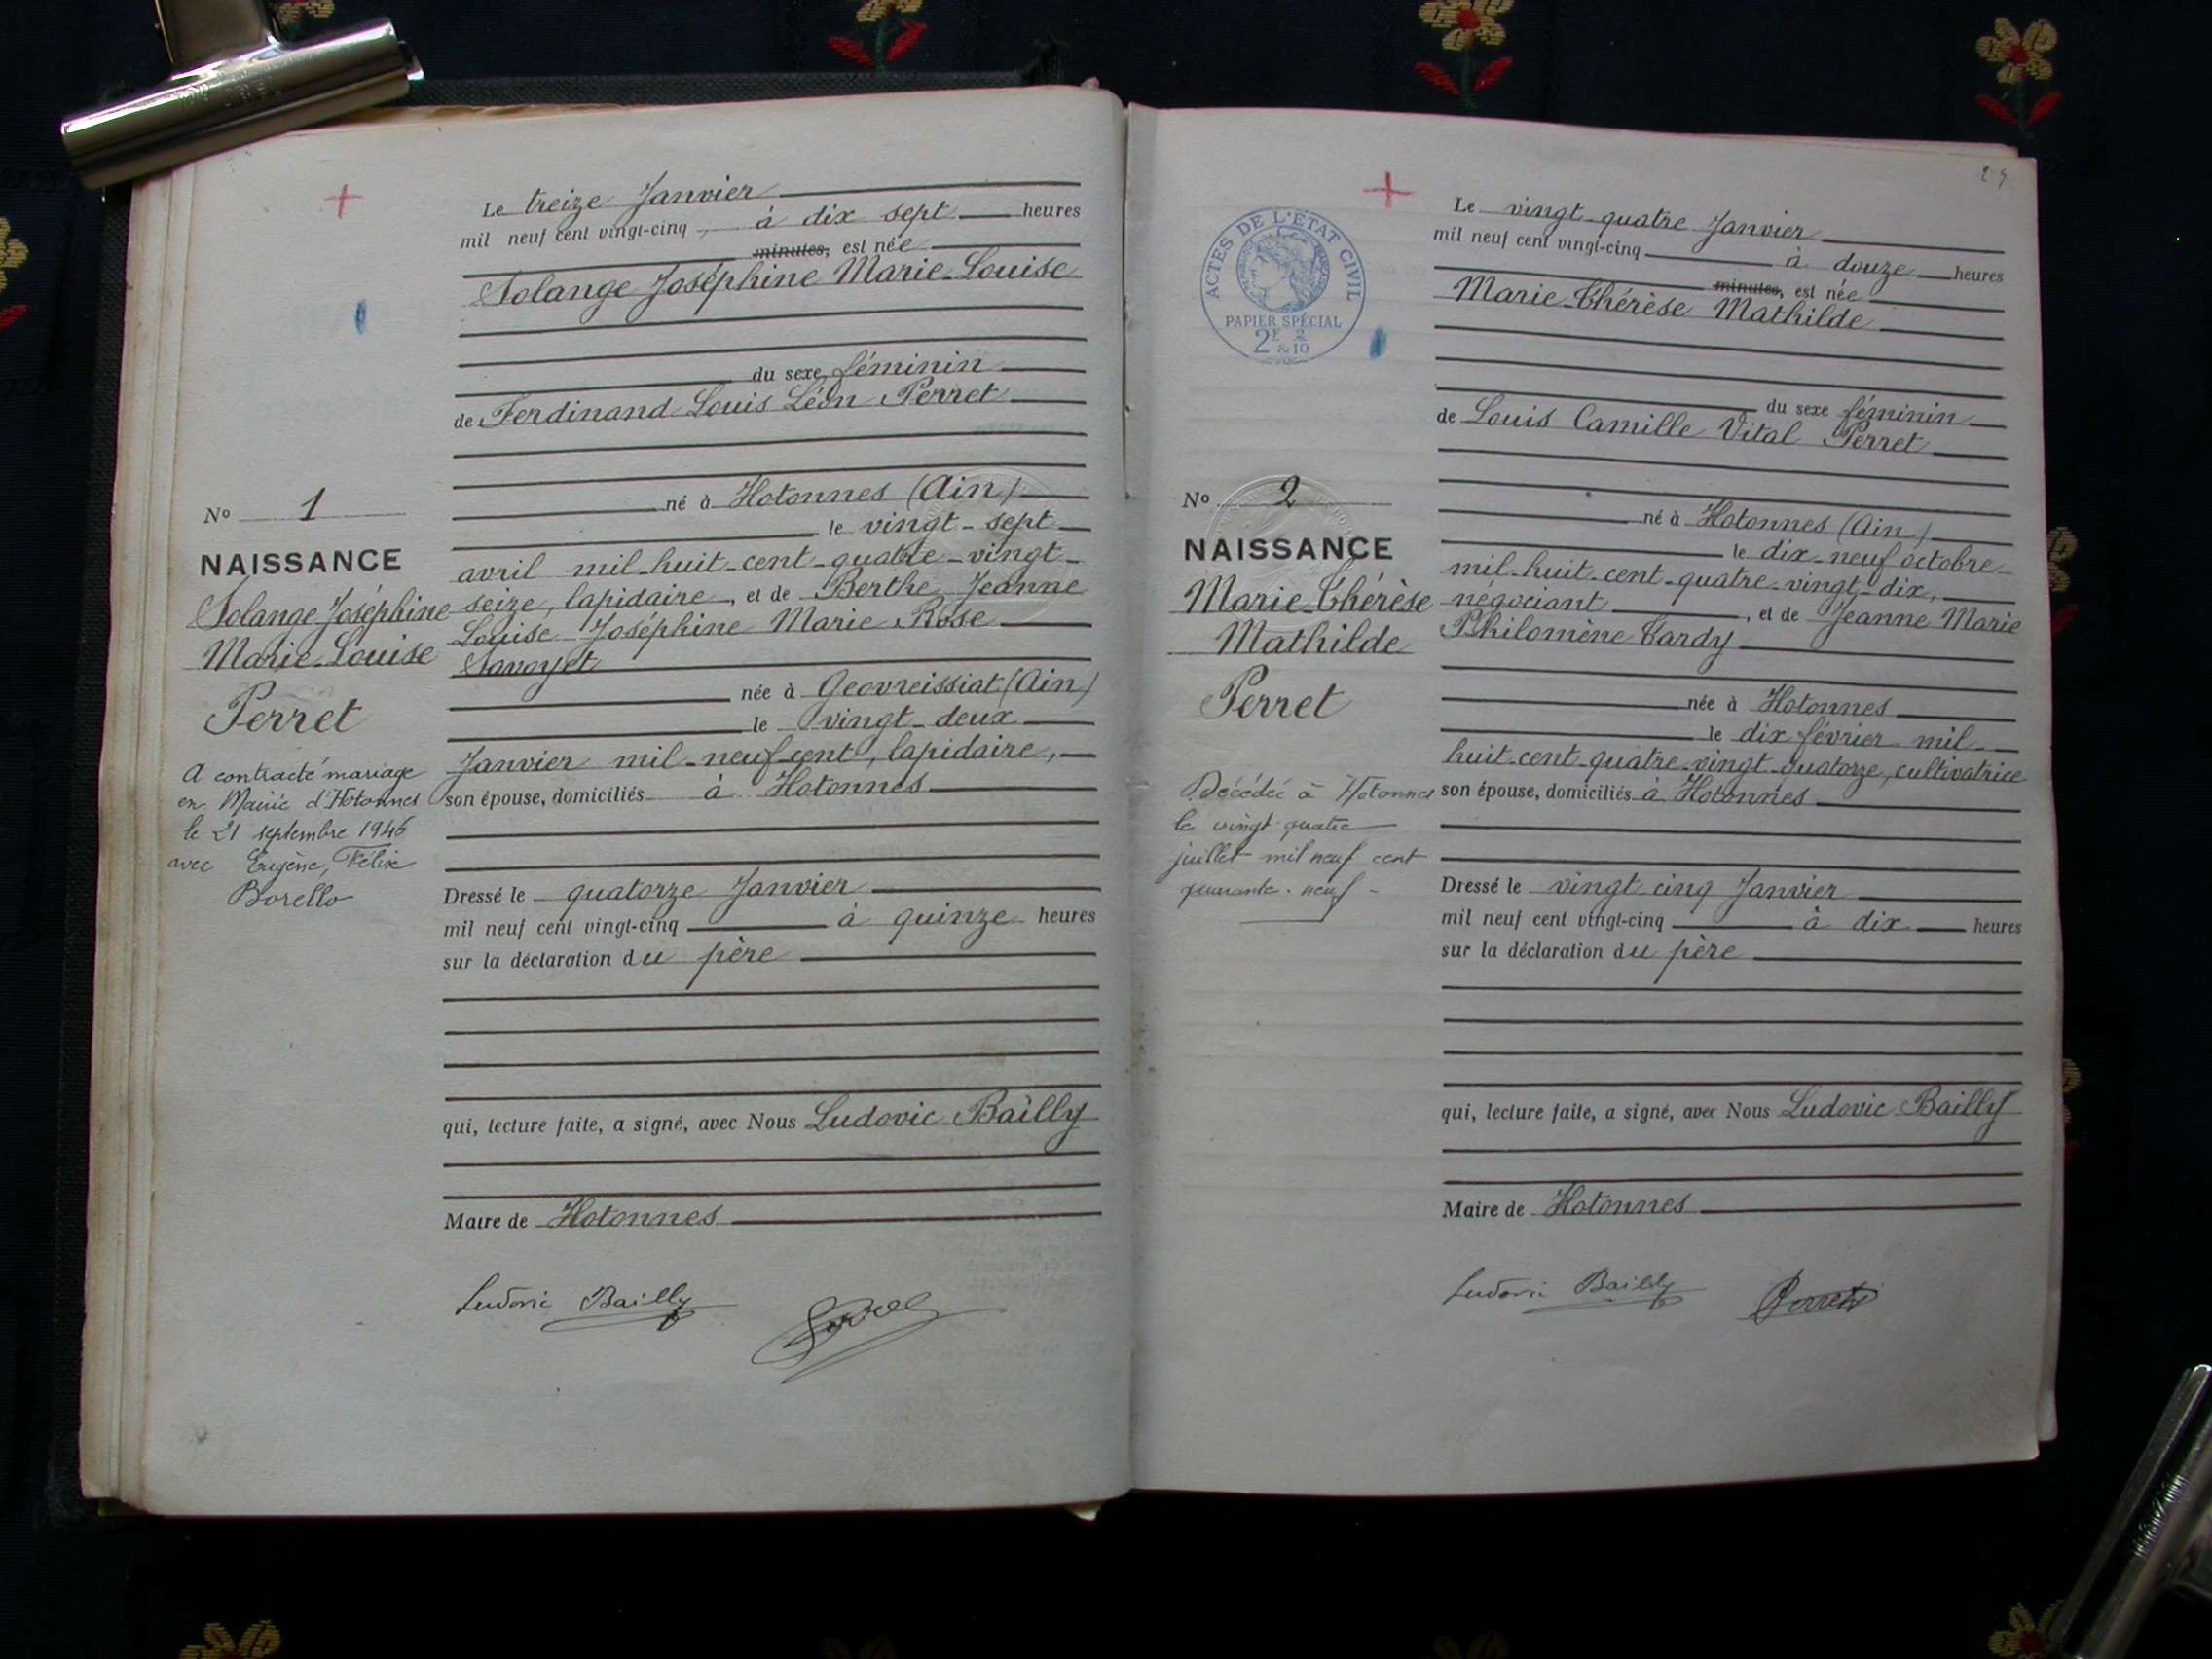 Le treize Janvier
mil neuf cent vingt-cinq, à dix sept heures
minutes, est née
Solange Joséphine Marie-Louise
du sexe féminin
de Ferdinand Louis Léon Perret
né à Hotonnes (Ain)
le vingt-sept
avril mil-huit-cent-quatre-vingt-
seize, lapidaire, et de Berthe Jeanne
Louise Joséphine Marie Rose
Savoyet
née à Geovreissiat (Ain)
le vingt-deux
Janvier mil-neuf-cent, lapidaire,
son épouse, domiciliés à Hotonnes
Dressé le quatorze Janvier
mil neuf cent vingt-cinq à quinze heures
sur la déclaration du père
qui, lecture faite, a signé, avec Nous Ludovic Bailly
Maire de Hotonnes
Ludovic Bailly
No 1
NAISSANCE
Solange Joséphine
Marie-Louise
Perret
A contracté mariage
en Mairie d'Hotonnes
le 21 septembre 1946
avec Eugène, Félix
Borello
29
ACTES DE L'ÉTAT CIVIL
PAPIER SPÉCIAL
2F & 2/10
Le vingt-quatre Janvier
mil neuf cent vingt-cinq à douze heures
minutes, est née
Marie-Thérèse Mathilde
du sexe féminin
de Louis Camille Vital Perret
né à Hotonnes (Ain)
le dix-neuf octobre
mil-huit-cent-quatre-vingt-dix,
négociant, et de Jeanne Marie
Philomène Tardy
née à Hotonnes
le dix février mil
huit-cent-quatre-vingt-quatorze, cultivatrice
son épouse, domiciliés à Hotonnes
Dressé le vingt cinq Janvier
mil neuf cent vingt-cinq à dix heures
sur la déclaration du père
qui, lecture faite, a signé, avec Nous Ludovic Bailly
Maire de Hotonnes
Ludovic Bailly Perret
No 2
NAISSANCE
Marie-Thérèse
Mathilde
Perret
Décédée à Hotonnes
le vingt-quatre
juillet mil neuf cent
quarante-neuf-